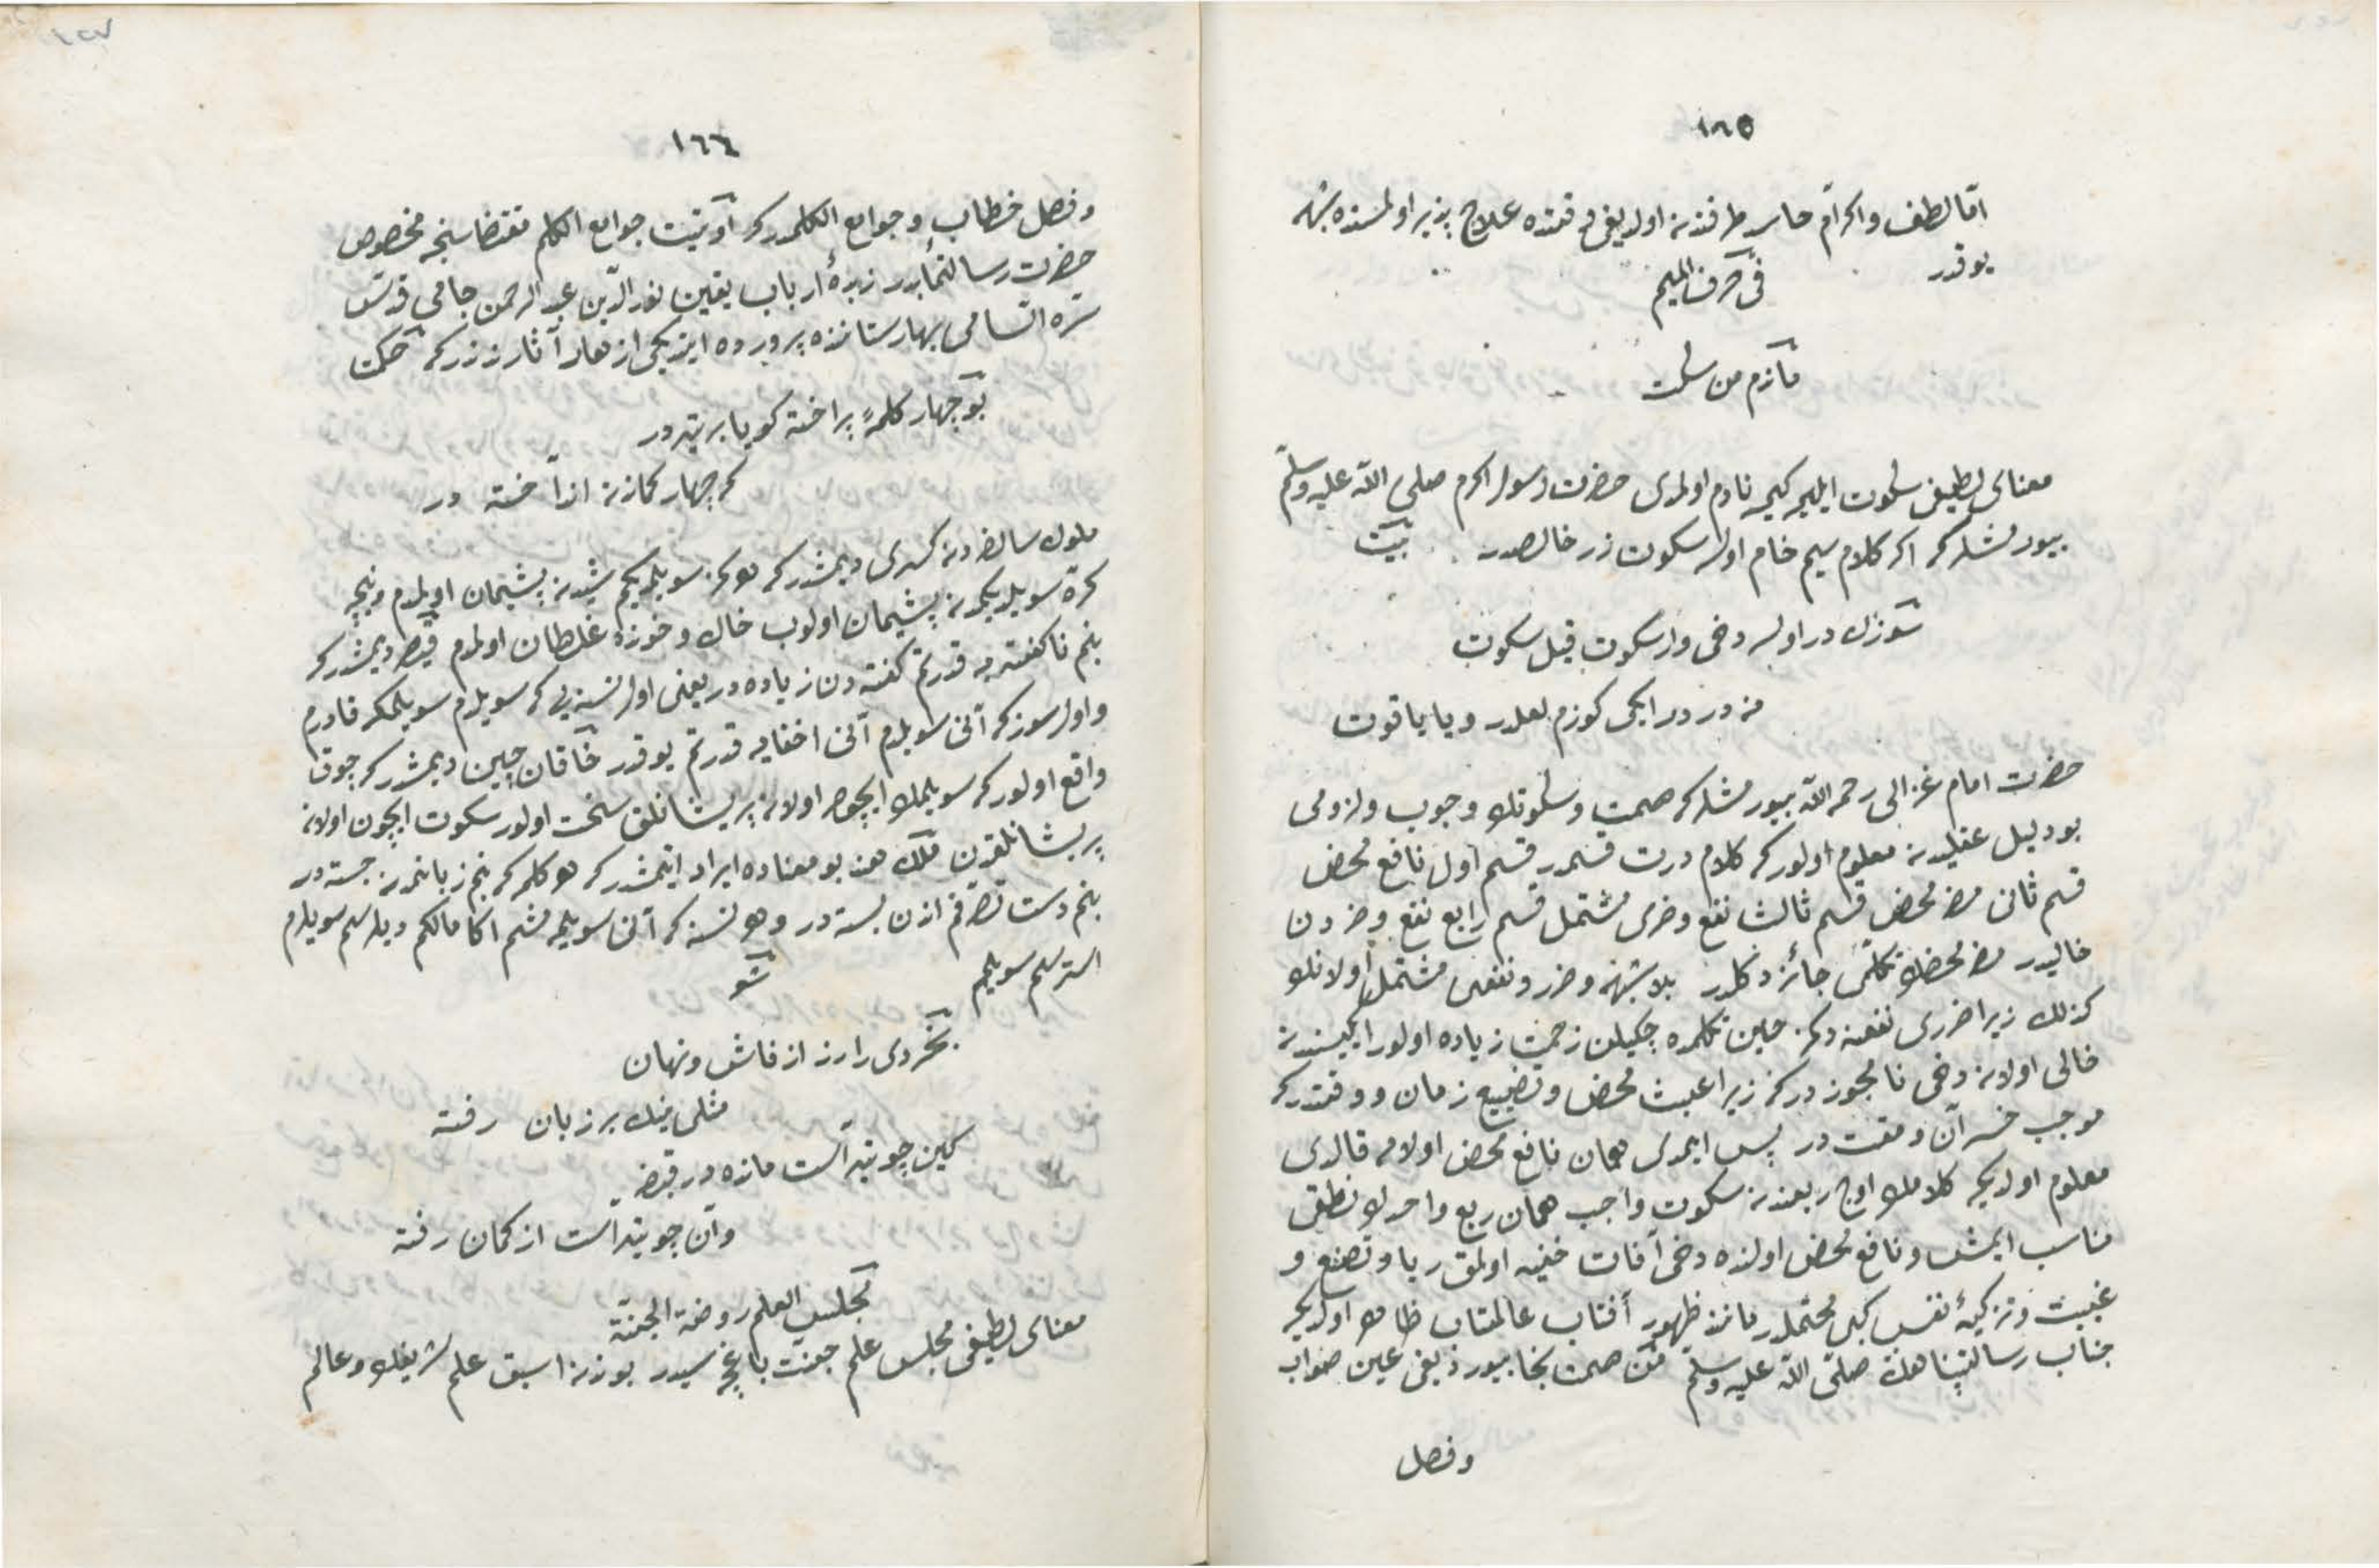 ١٨٥
امّا لطف واكرام حاسد طرفندن اولديغى وقتده علاج پذير اولمسنده شبهه
يوقدر
فى حرف الميم
ما ندم من سكت
معناى لطيفى سكوت ايليجى كيمسه نادم اولمدى حضرت رسول اكرم صلى الله عليه وسلم
بيورمشلركه اكر كلام سيم خام اولسه سكوت زر خالصدر بيت
سوزك در اولسه دخى وار سكوت قيل سكوت
نه در در ايكى كوزم لعلدر ويا ياقوت
حضرت امام غزالى رحمه الله بيورمشلركه صمت وسكوتك وجوب ولزومى
بو دليل عقليدن معلوم اولوركه كلام درت قسمدر قسم اول نافع محض
قسم ثانى ضر محض قسم ثالث نفع وضرى مشتمل قسم رابع نفع وضردن
خاليدر ضر محضله تكلم جائز دكلدر بلا شبهه وضرر ونفعى مشتمل اولانك
كذلك زيرا ضررى نفعنه دكمز حين تكلمده چكيلن زحمت زياده اولور ايكيسندن
خالى اولان دخى نامجوز دركه زيرا عبث محض وتضييع زمان ووقتدركه
موجب خسران ومقت در پس ايمدى همان نافع محض اولان قالدى
معلوم اولديكه كلامك اوچ ربعندن سكوت واجب همان ربع واحدله نطق
مناسب ايمش ونافع محض اولنده دخى آفات خفيه اولمق ريا وتصنع و
غيبت وتزكيهٔ نفس كبى محتملدر مانند ظهور آفتاب عالمتاب ظاهر اولديكه
جناب رسالتپناهك صلّى الله عليه وسلّم من صمت نجا بيورديغى عين صواب
وفصل
١٦٦
وفصل خطاب وجوامع الكلمدركه اوتيت جوامع الكلم مقتضاسنجه مخصوص
حضرت رسالتمآبدر زبدهٔ ارباب يقين نور الدّين عبد الرحمن جامى قدّس
سرّه السامى بهارستانده پرورده ايتديكى ازهار آثارندندركه حكمت
بو چهار كلمهٔ پراخته كويا بر تيردر
كه چهار كماندن انداخته در
ملوك سالفه دن كسرى ديمشدركه هركز سويلمديكم شيدن پشيمان اولمدم ونيجه
كره سويلديكمدن پشيمان اولوب خاك وخونده غلطان اولدم قيصر ديمشدركه
بنم ناكفته يه قدرتم كفته دن زياده در يعنى اول نسنه يى كه سويلمدم سويلمكه قادرم
واول سوزكه آنى سويلدم آنى اخفايه قدرتم يوقدر خاقان چين ديمشدركه چوق
واقع اولوركه سويلمك ايچون اولان پريشانلق سخت اولور سكوت ايچون اولان
پريشانلقدن ملك هند بو معناده ايراد ايتمشدركه هر كلمه كه بنم زبانمدن جسته در
بنم دست تصرفم اندن بسته در وهر نسنه كه آنى سويلمه مشم اكا مالكم ديلرسم سويلرم
استرسم سويلمم شعر
بخردى را رزد از فاش ونهان
مثلى نيك بر زبان رفته
كين چو تير است مانده در قبضه
وآن چو تير است از كمان رفته
مجلس العلم روضة الجنّة
معناى لطيفى مجلس علم جنّت باغچه سيدر بوندن اسبق علم شريفك وعالم